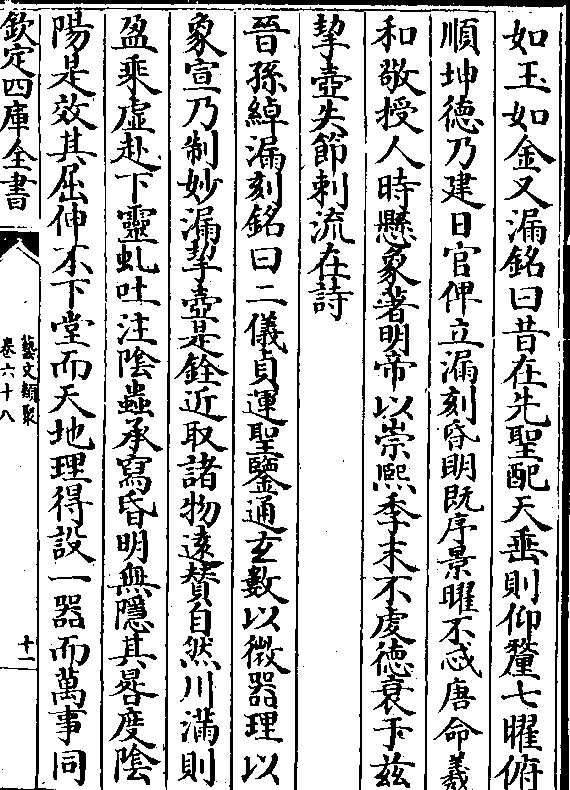 如玉如金又漏銘曰昔在先聖配天垂則仰釐七曜俯
順坤德乃建日官俾立漏刻昏明既序景曜不忒唐命羲
和敬授人時懸象著明帝以崇熙季末不虔德衰于兹
挈壺失節刺流在詩
晉孫綽漏刻銘曰二儀貞運聖鑒通玄數以徴器理以
象宣乃制妙漏挈壺是銓近取諸物遠賛自然川滿則
盈乘虛赴下靈虬吐注陰蟲承寫昏明無隱其晷度陰
陽是效其屈伸不下堂而天地理得設一器而萬事同
欽定四庫全書
藝文類聚
卷六十八
十一